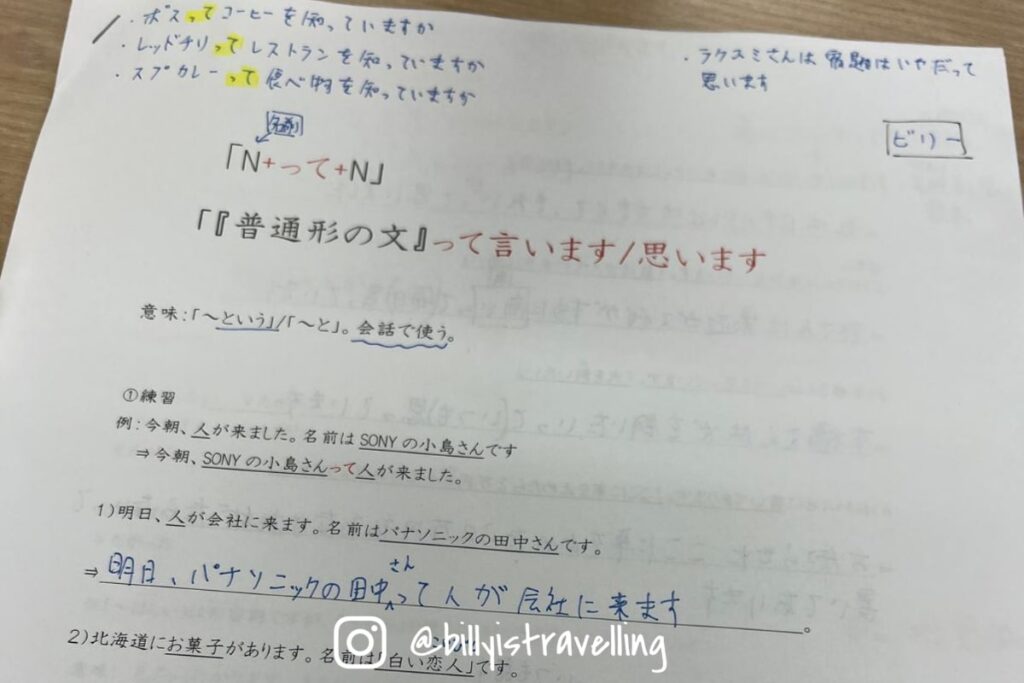 ・ボスってコーヒーを知っていますか
・レッドチリってレストランを知っていますか
・スプカレーって食べ物を知っていますか
・ラクスミさんは宿題はいやだって
思います
ビリー
名前
「N+って+N」
「『普通形の文』って言います/思います
意味:「~という」/「~と」。会話で使う。
①練習
例:今朝、人が来ました。名前はSONYの小島さんです
⇒今朝、SONYの小島さんって人が来ました。
1)明日、人が会社に来ます。名前はパナソニックの田中さんです。
⇒明日、パナソニックの田中さんって人が会社に来ます。
2)北海道にお菓子があります。名前は「白い恋人」です。
@billyistravelling